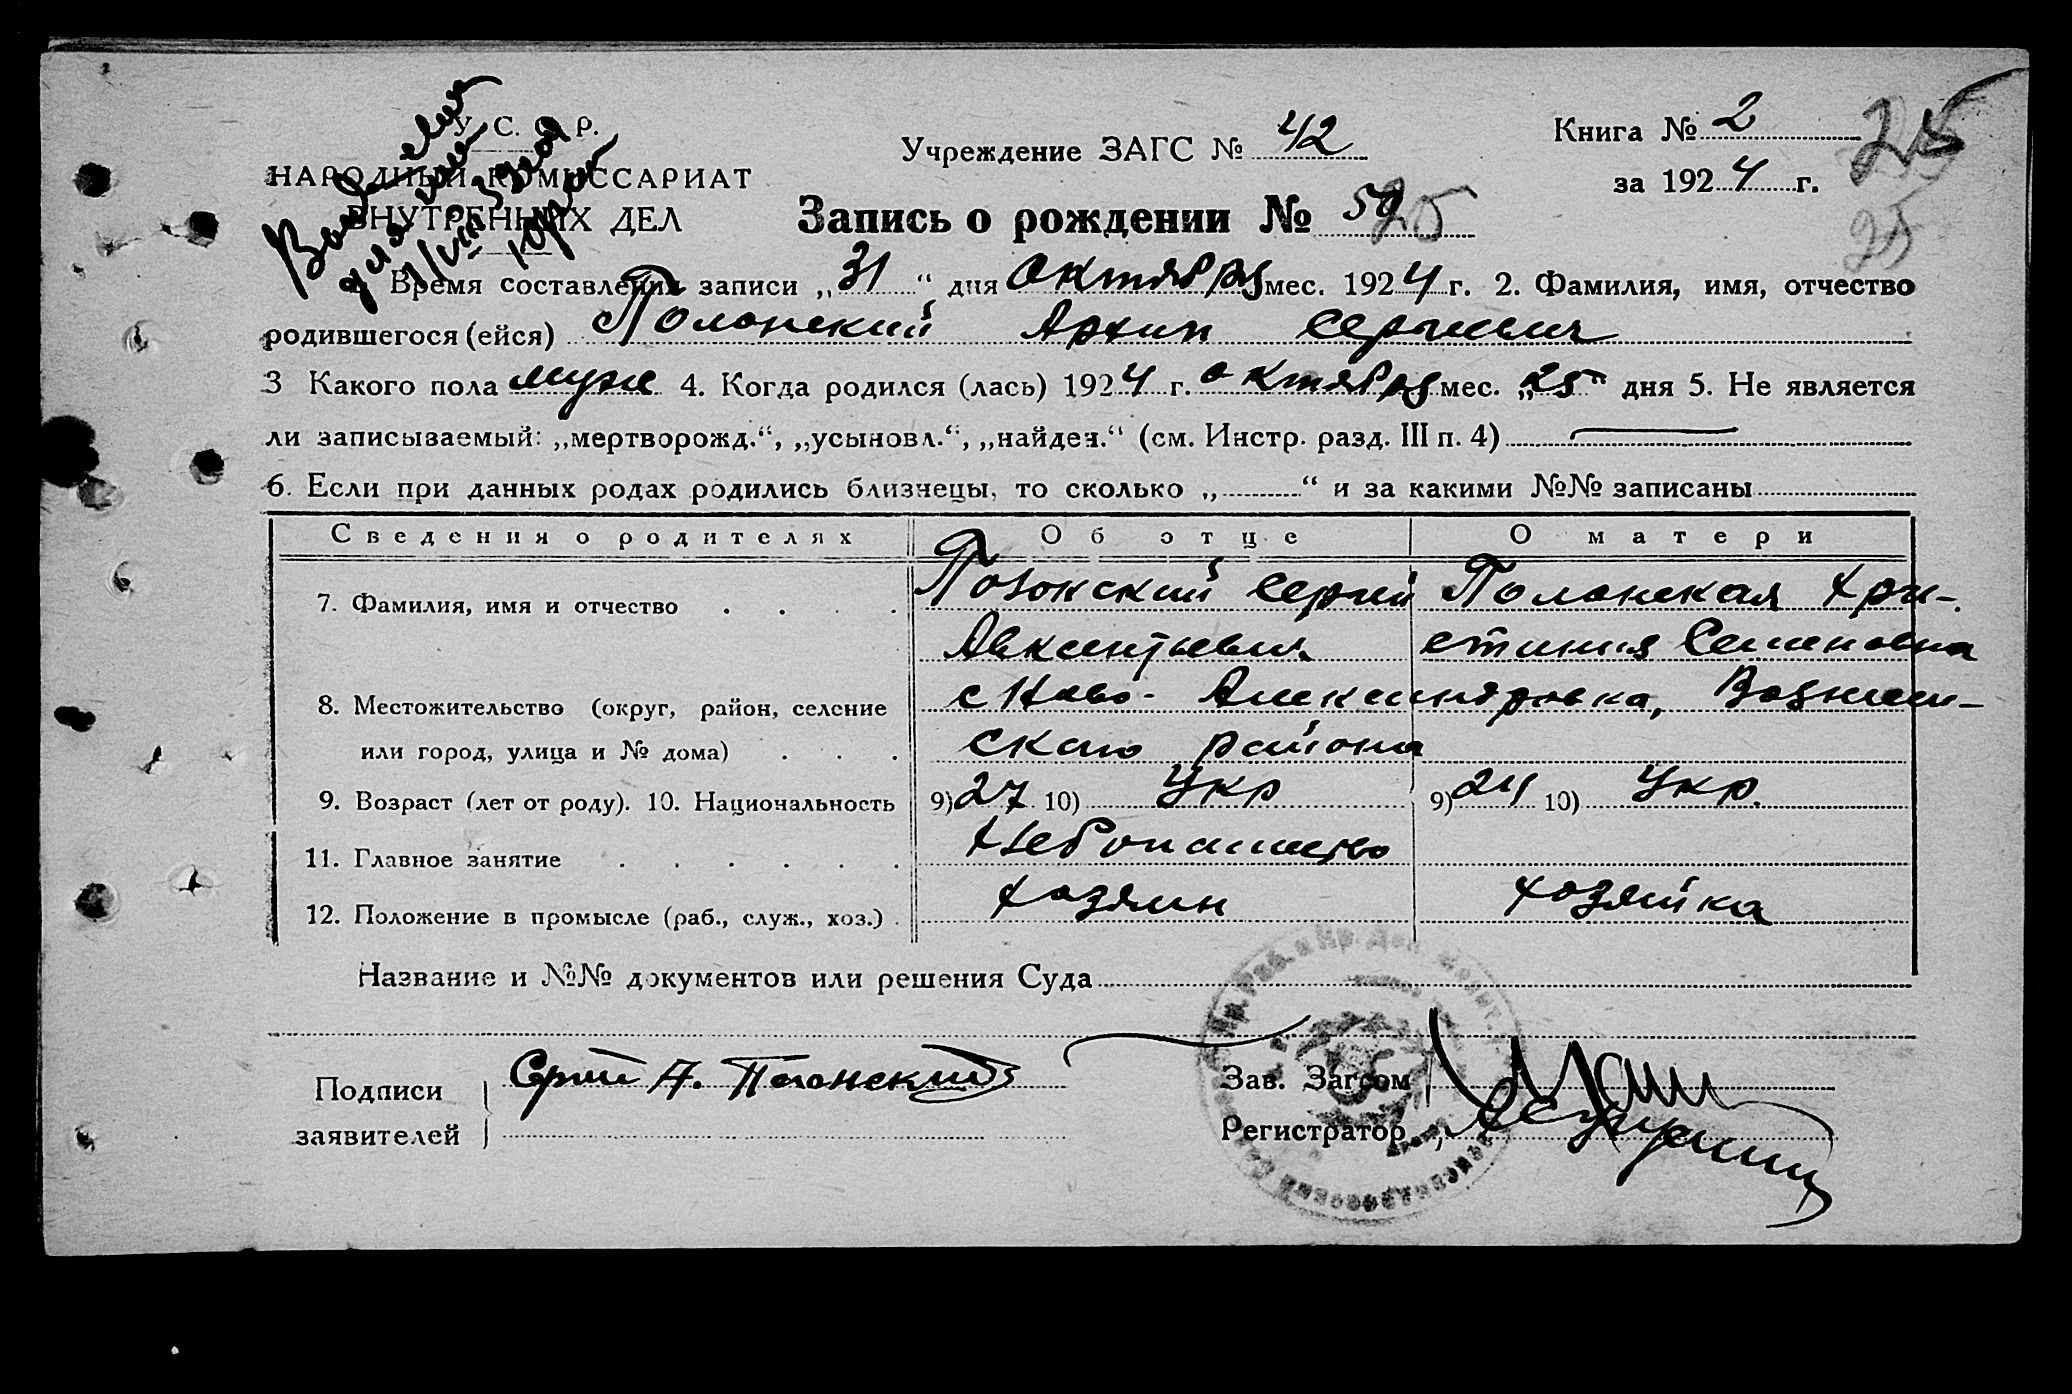 У. С. С. Р.
НАРОДНЫЙ КОМИССАРИАТ
ВНУТРЕННИХ ДЕЛ
Учреждение ЗАГС № 42
Книга № 2
за 1924 г.
25
25
Запись о рождении № 25
Время составления записи „31“ дня октября мес. 1924 г. 2. Фамилия, имя, отчество
родившегося (ейся) Полонский Архип Сергеевич
3 Какого пола муж 4. Когда родился (лась) 1924 г. октября мес. „25“ дня 5. Не является
ли записываемый: „мертворожд.“, „усыновл.“, „найден.“ (см. Инстр. разд. III п. 4)
6. Если при данных родах родились близнецы, то сколько „ “ и за какими №№ записаны
Сведения о родителях Об отце О матери
7. Фамилия, имя и отчество Полонский Сергей Полонская Хри-
Авксентьевич стиния Семеновна
8. Местожительство (округ, район, селение с Ново-Александровка, Вознесен-
или город, улица и № дома) ского района
9. Возраст (лет от роду). 10. Национальность 9) 27 10) Укр 9) 24 10) Укр.
11. Главное занятие Хлебопашество
12. Положение в промысле (раб., служ., хоз.) хозяин хозяйка
Название и №№ документов или решения Суда
Подписи Сергей А. Полонский
заявителей
Зав. Загсом
Регистратор